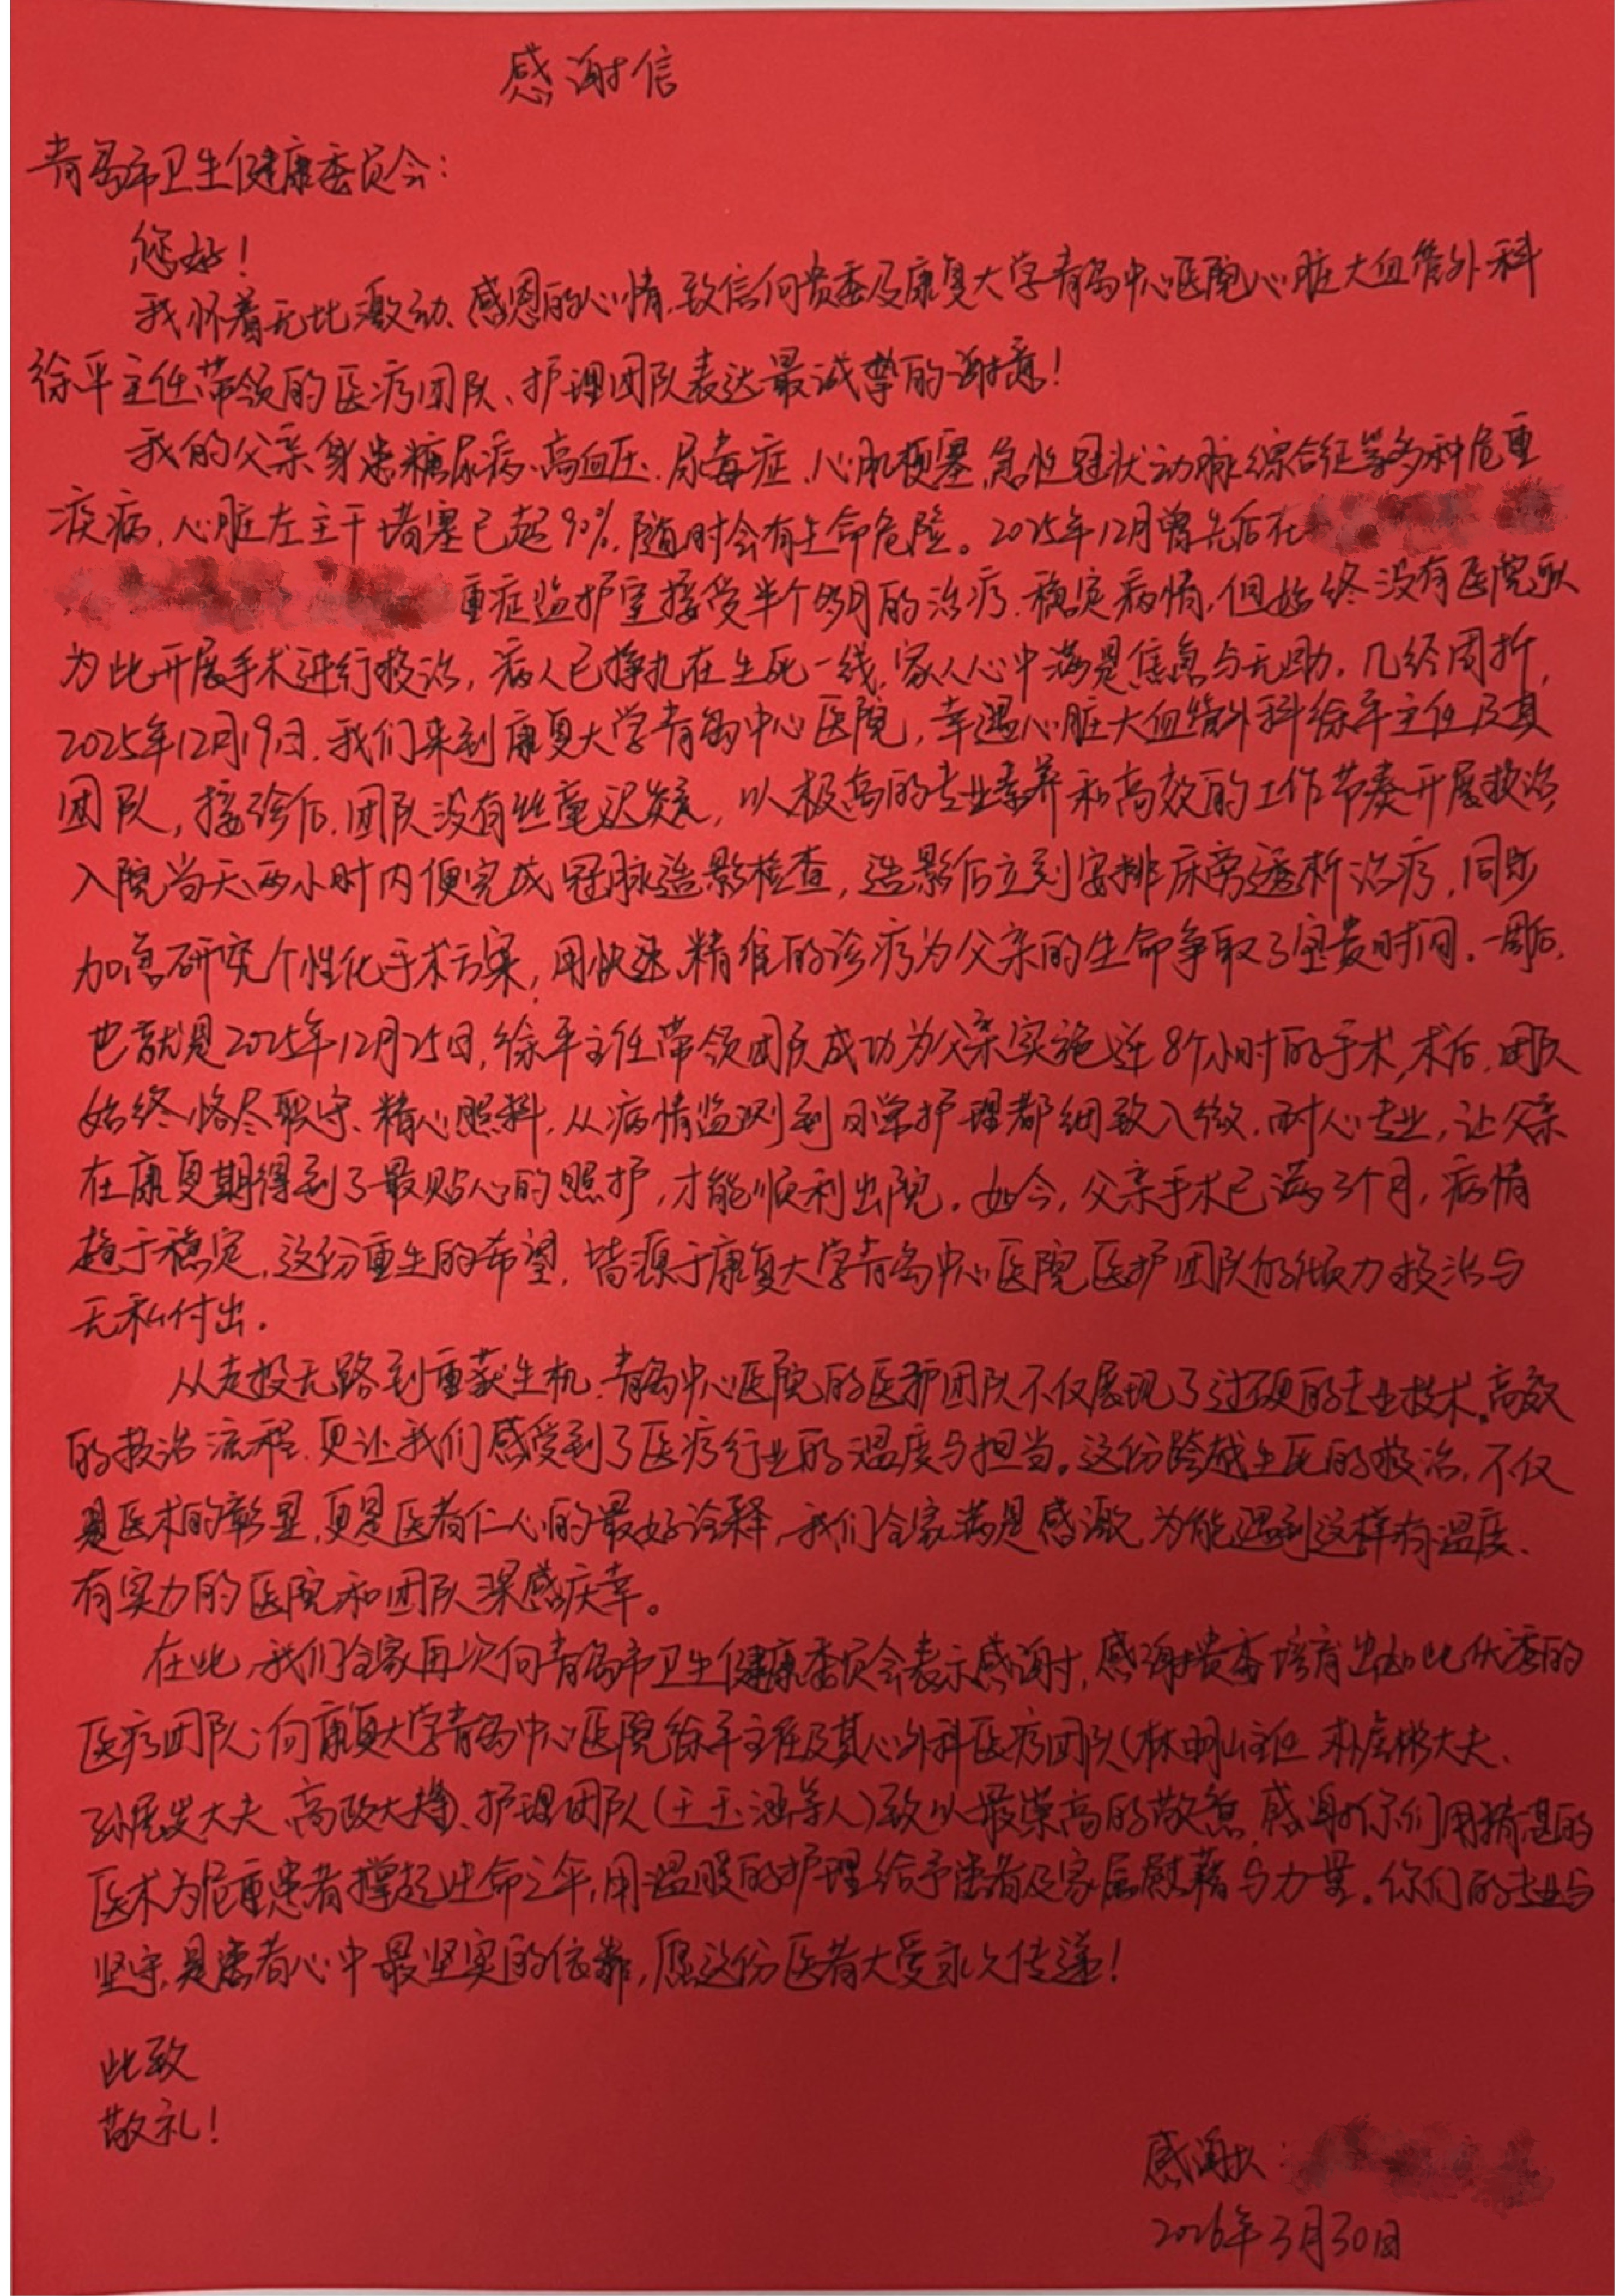 感谢信
青岛市卫生健康委员会：
您好！
我怀着无比激动、感恩的心情，致信向贵委及康复大学青岛中心医院心脏大血管外科
徐平主任带领的医疗团队、护理团队表达最诚挚的谢意！
我的父亲身患糖尿病、高血压、尿毒症、心肌梗塞、急性冠状动脉综合征等多种危重
疾病，心脏左主干堵塞已超90%，随时会有生命危险。2025年12月曾先后在
重症监护室接受半个多月的治疗，稳定病情，但始终没有医院敢
为此开展手术进行救治，病人已挣扎在生死一线，家人心中满是焦急与无助。几经周折，
2025年12月19日，我们来到康复大学青岛中心医院，幸遇心脏大血管外科徐平主任及其
团队，接诊后，团队没有丝毫迟疑，以极高的专业素养和高效的工作节奏开展救治，
入院当天两小时内便完成冠脉造影检查，造影后立刻安排床旁透析治疗，同步
加急研究个性化手术方案，用快速、精准的诊疗为父亲的生命争取了宝贵时间。一周后，
也就是2025年12月25日，徐平主任带领团队成功为父亲实施近8个小时的手术，术后，团队
始终恪尽职守、精心照料，从病情监测到日常护理都细致入微、耐心专业，让父亲
在康复期得到了最贴心的照护，才能顺利出院。如今，父亲手术已满3个月，病情
趋于稳定，这份重生的希望，皆源于康复大学青岛中心医院医护团队的倾力救治与
无私付出。
从走投无路到重获生机，青岛中心医院的医护团队不仅展现了过硬的专业技术、高效
的救治流程，更让我们感受到了医疗行业的温度与担当。这份跨越生死的救治，不仅
是医术的彰显，更是医者仁心的最好诠释，我们全家满是感激，为能遇到这样有温度、
有实力的医院和团队深感庆幸。
在此，我们全家再次向青岛市卫生健康委员会表示感谢，感谢贵委培育出如此优秀的
医疗团队；向康复大学青岛中心医院徐平主任及其心外科医疗团队（林明山主任、朴大夫、
孙展发大夫、高政大夫等）、护理团队（王玉涵等人）致以最崇高的敬意，感谢你们用精湛的
医术为危重患者撑起生命之伞，用温暖的护理给予患者及家属慰藉与力量。你们的专业与
坚守，是患者心中最坚实的依靠，愿这份医者大爱永久传递！
此致
敬礼！
感谢人：
2026年3月30日